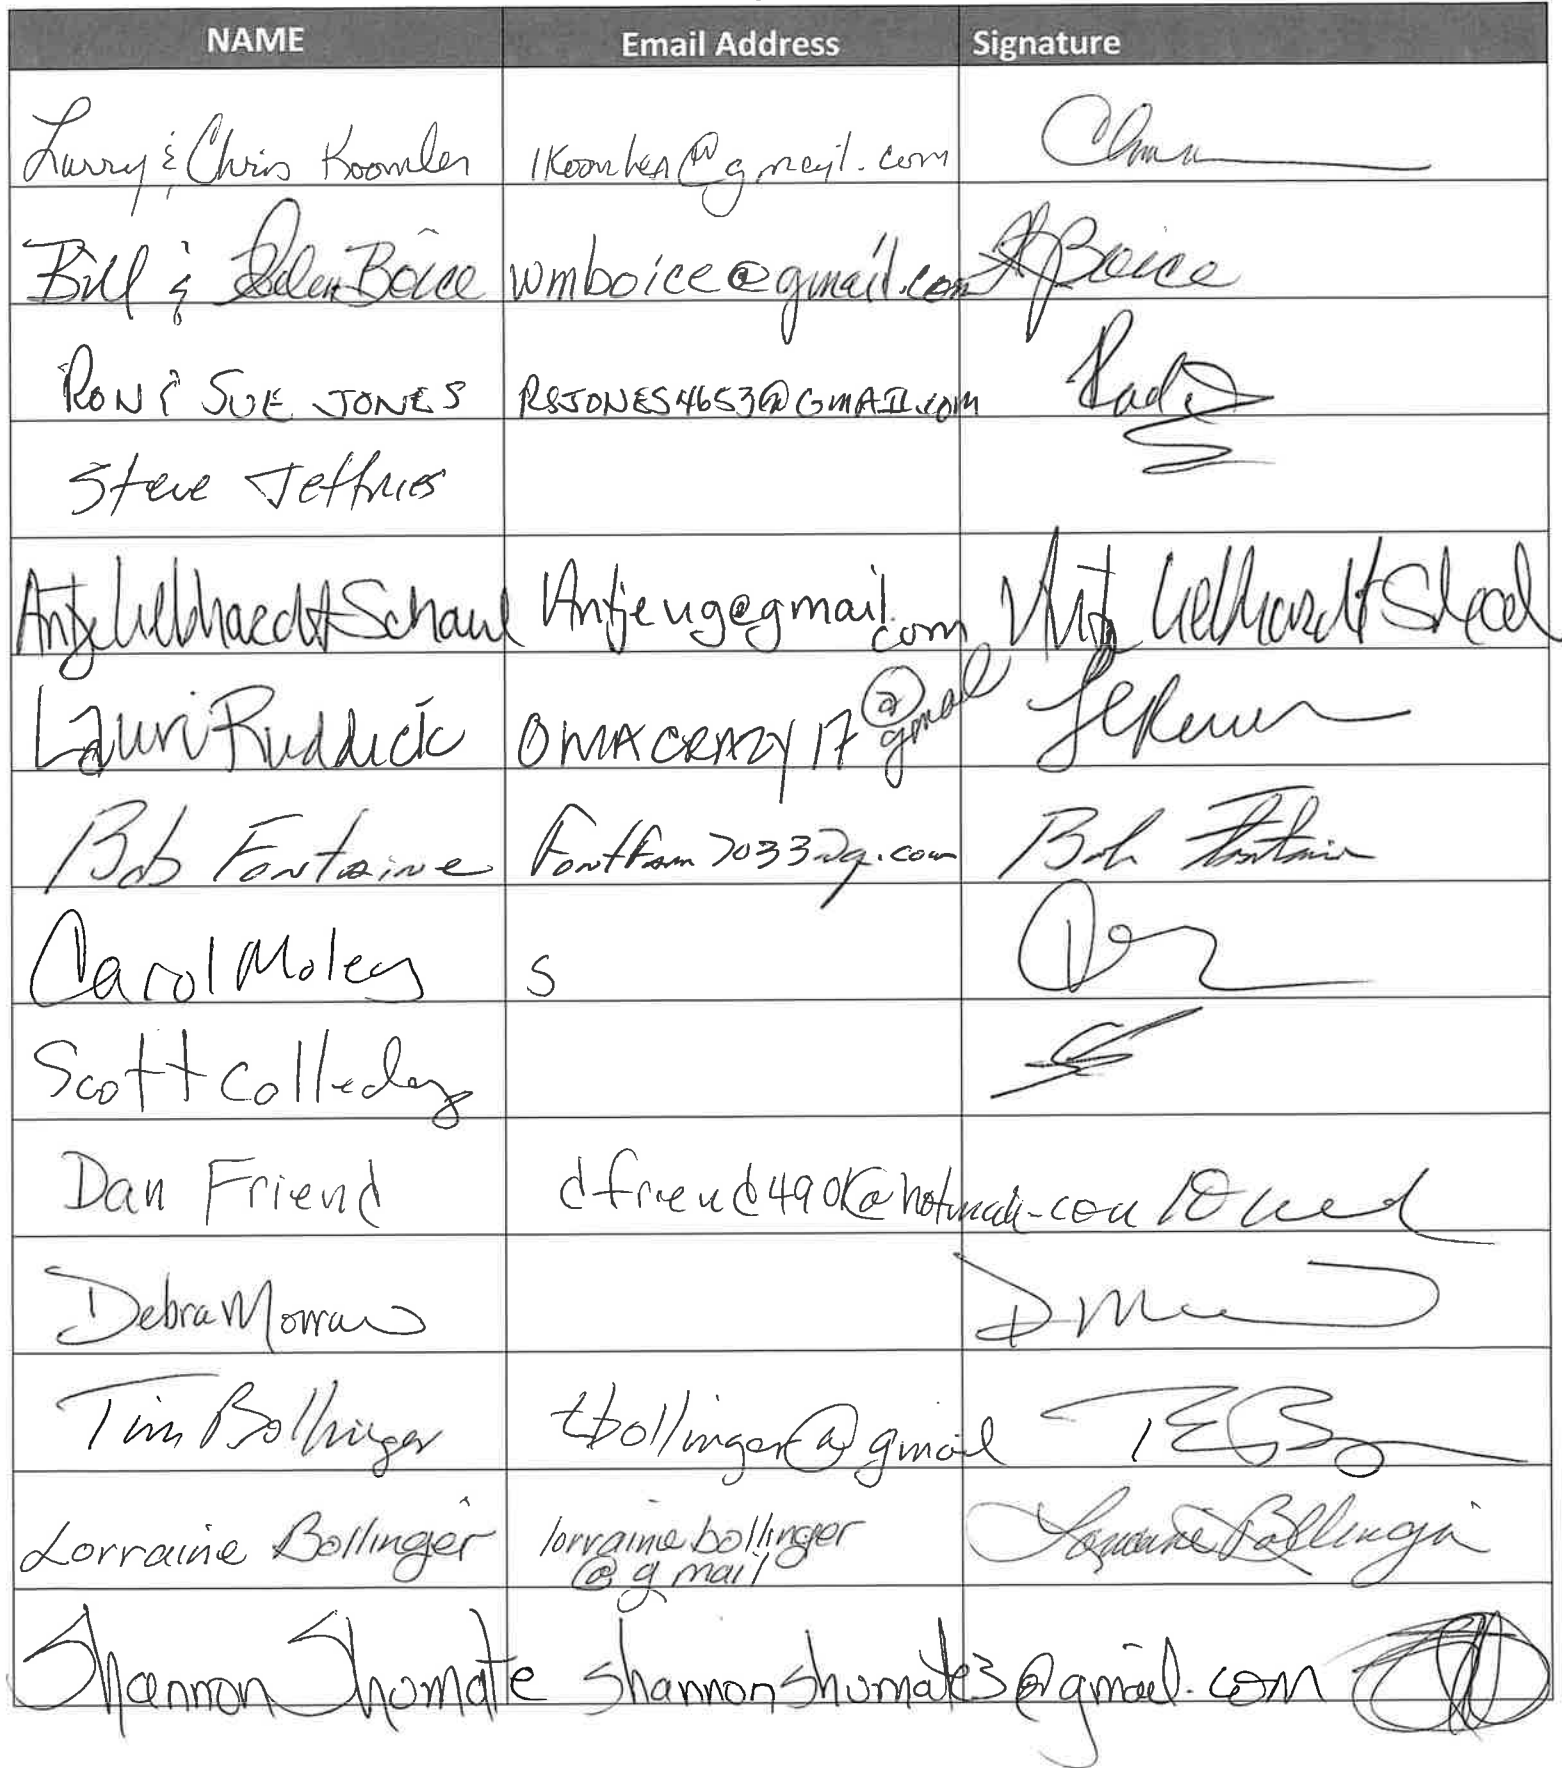 NAME Email Address Signature
Larry & Chris Koomler lkoomler@gmail.com
Bill & Helen Boice wmboice@gmail.com Boice
RON & SUE JONES RSJONES4653@GMAIL.com
Steve Jeffries
Antje Schaul Antjeug@gmail.com
Lauri Ruddick OMACRAZY17@gmail
Bob Fontaine Bob Fontaine
Carol Moles S
Scott
Dan Friend dfriend490@hotmail.com
Debra Morrow
Tim Bollinger tbollinger@gmail
Lorraine Bollinger lorrainebollinger Lorraine Bollinger
@gmail
Shannon Shumate shannonshumate3@gmail.com